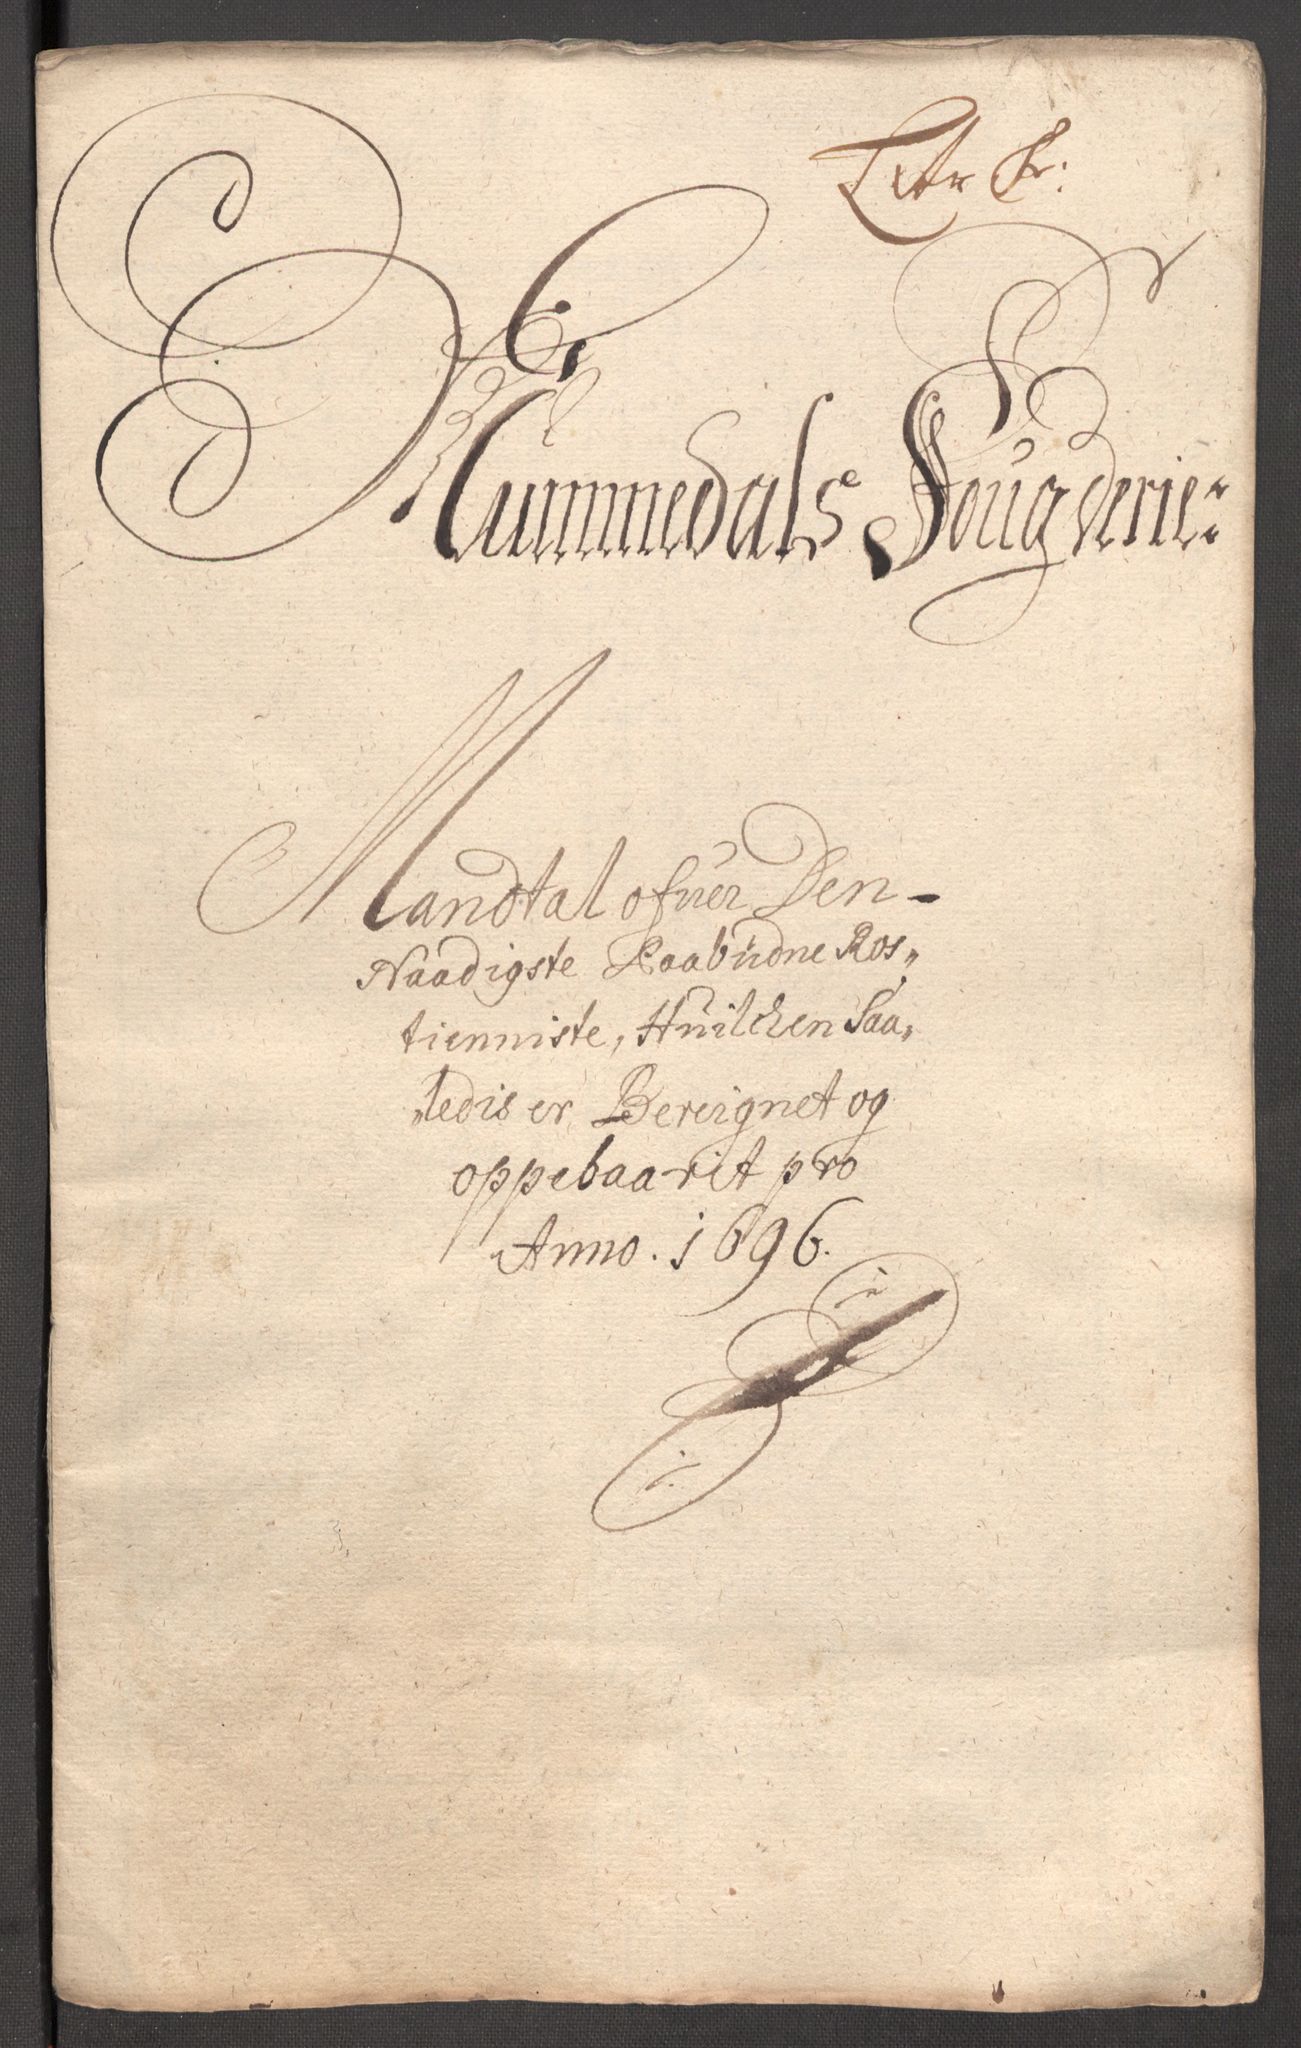 Litr
Nummedals Fougderie:
Mandtal ofuer Den
Naadigste Paabudne Ros,,
tienniste, Huilchen Saa,,
ledis er Bereignet og
oppebaarit pro
Anno. 1696.